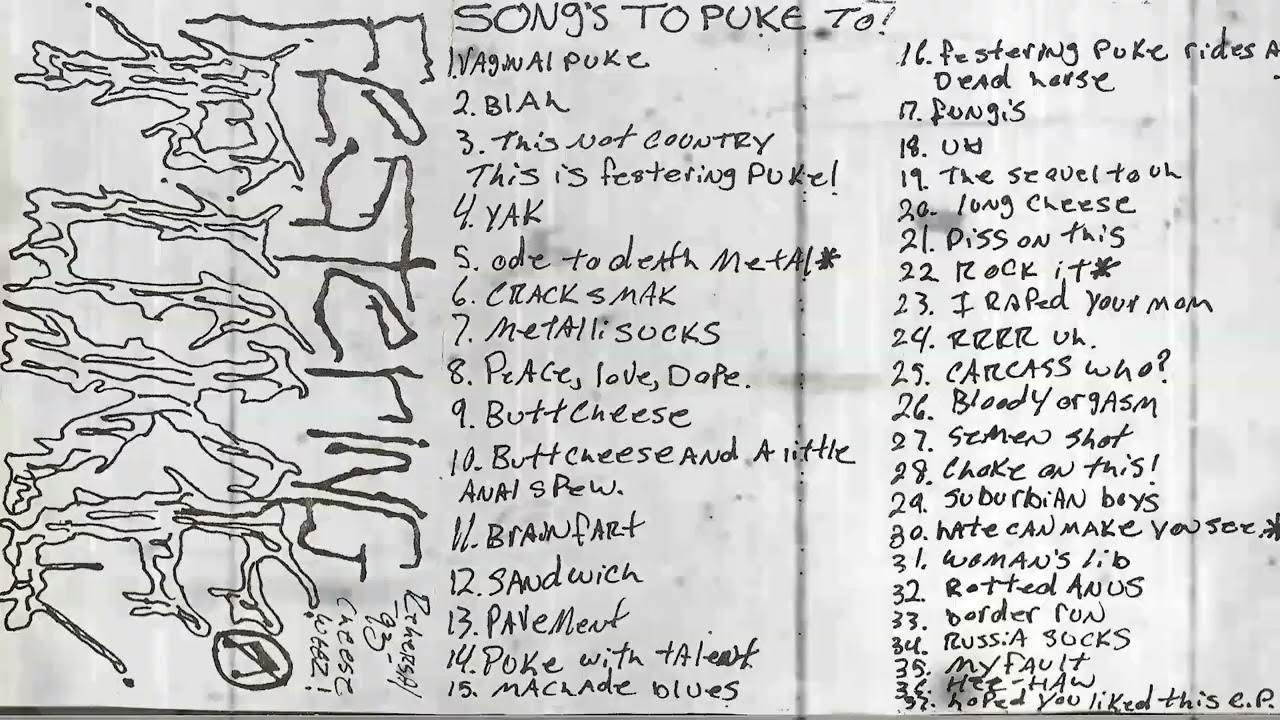 SONG'S TO PUKE TO!
1. VAGINAL PUKE
2. BLAH
3. This Not COUNTRY
This is festering PUKE!
4. YAK
5. ode to death Metal*
6. CRACK SMAK
7. Metalli SUCKS
8. PeACe, love, Dope.
9. Butt Cheese
10. Butt Cheese AND A little
ANAl spew.
11. BRAiN fART
12. SANdwich
13. PAVeMent
14. Puke with tAlent
15. MACHADE blues
16. festering Puke rides A
DeAD horse
17. fungis
18. UH
19. The sequel to uh
20. long Cheese
21. Piss on this
22 ROCK it*
23. I RAPed your mom
24. RRRR Uh.
25. CARCASS who?
26. Bloody orgASM
27. semen shot
28. Choke on this!
29. SuburbiAN boys
30. hAte CAN MAKE you see.*
31. WOMAN'S lib
32. Rotted ANUS
33. border run
34. RUSSiA SUCKS
35. My fAult
36. Hee-HAW
37. hoped you liked this e.p.
festering
Puke
Rehersal
-93-
Cheese
WEEZ!